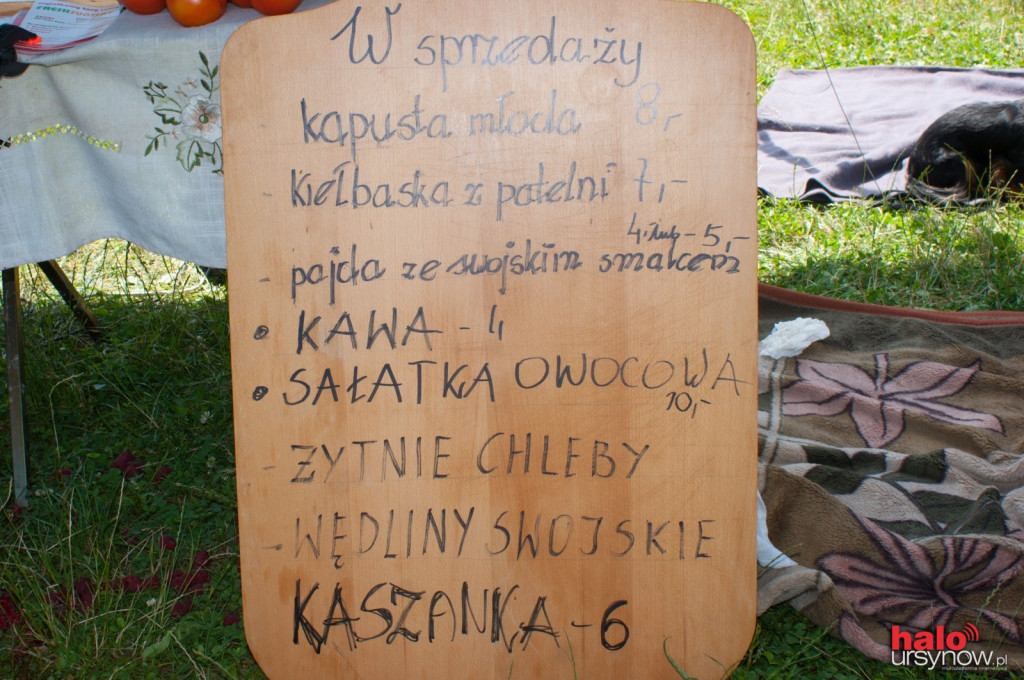 W sprzedaży
kapusta młoda 8,-
- Kiełbaska z patelni 7,-
4,- lub - 5,-
- pajda ze swojskim smalcem
• KAWA - 4
• SAŁATKA OWOCOWA
10,-
- ŻYTNIE CHLEBY
- WĘDLINY SWOJSKIE
KASZANKA - 6
halo
URSYNOW.pl